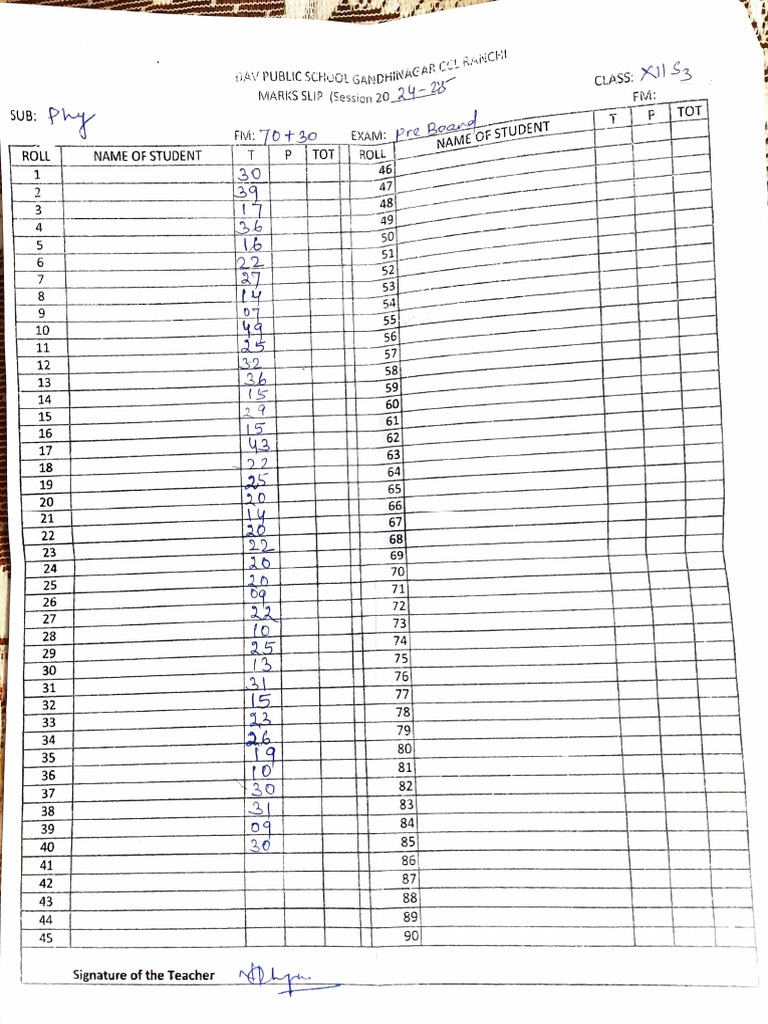 DAV PUBLIC SCHOOL GANDHINAGAR CCL RANCHI
MARKS SLIP (Session 20 24-25
CLASS: XII S3
SUB: Phy
FM: 70+30 EXAM: Pre Board
FM:
ROLL NAME OF STUDENT T P TOT ROLL NAME OF STUDENT T P TOT
1 30 46
2 39 47
3 17 48
4 36 49
5 16 50
6 22 51
7 27 52
8 14 53
9 07 54
10 49 55
11 25 56
12 32 57
13 36 58
14 15 59
15 29 60
16 15 61
17 43 62
18 22 63
19 25 64
20 20 65
21 14 66
22 20 67
23 22 68
24 20 69
25 20 70
26 09 71
27 22 72
28 10 73
29 25 74
30 13 75
31 31 76
32 15 77
33 23 78
34 26 79
35 19 80
36 10 81
37 30 82
38 31 83
39 09 84
40 30 85
41 86
42 87
43 88
44 89
45 90
Signature of the Teacher